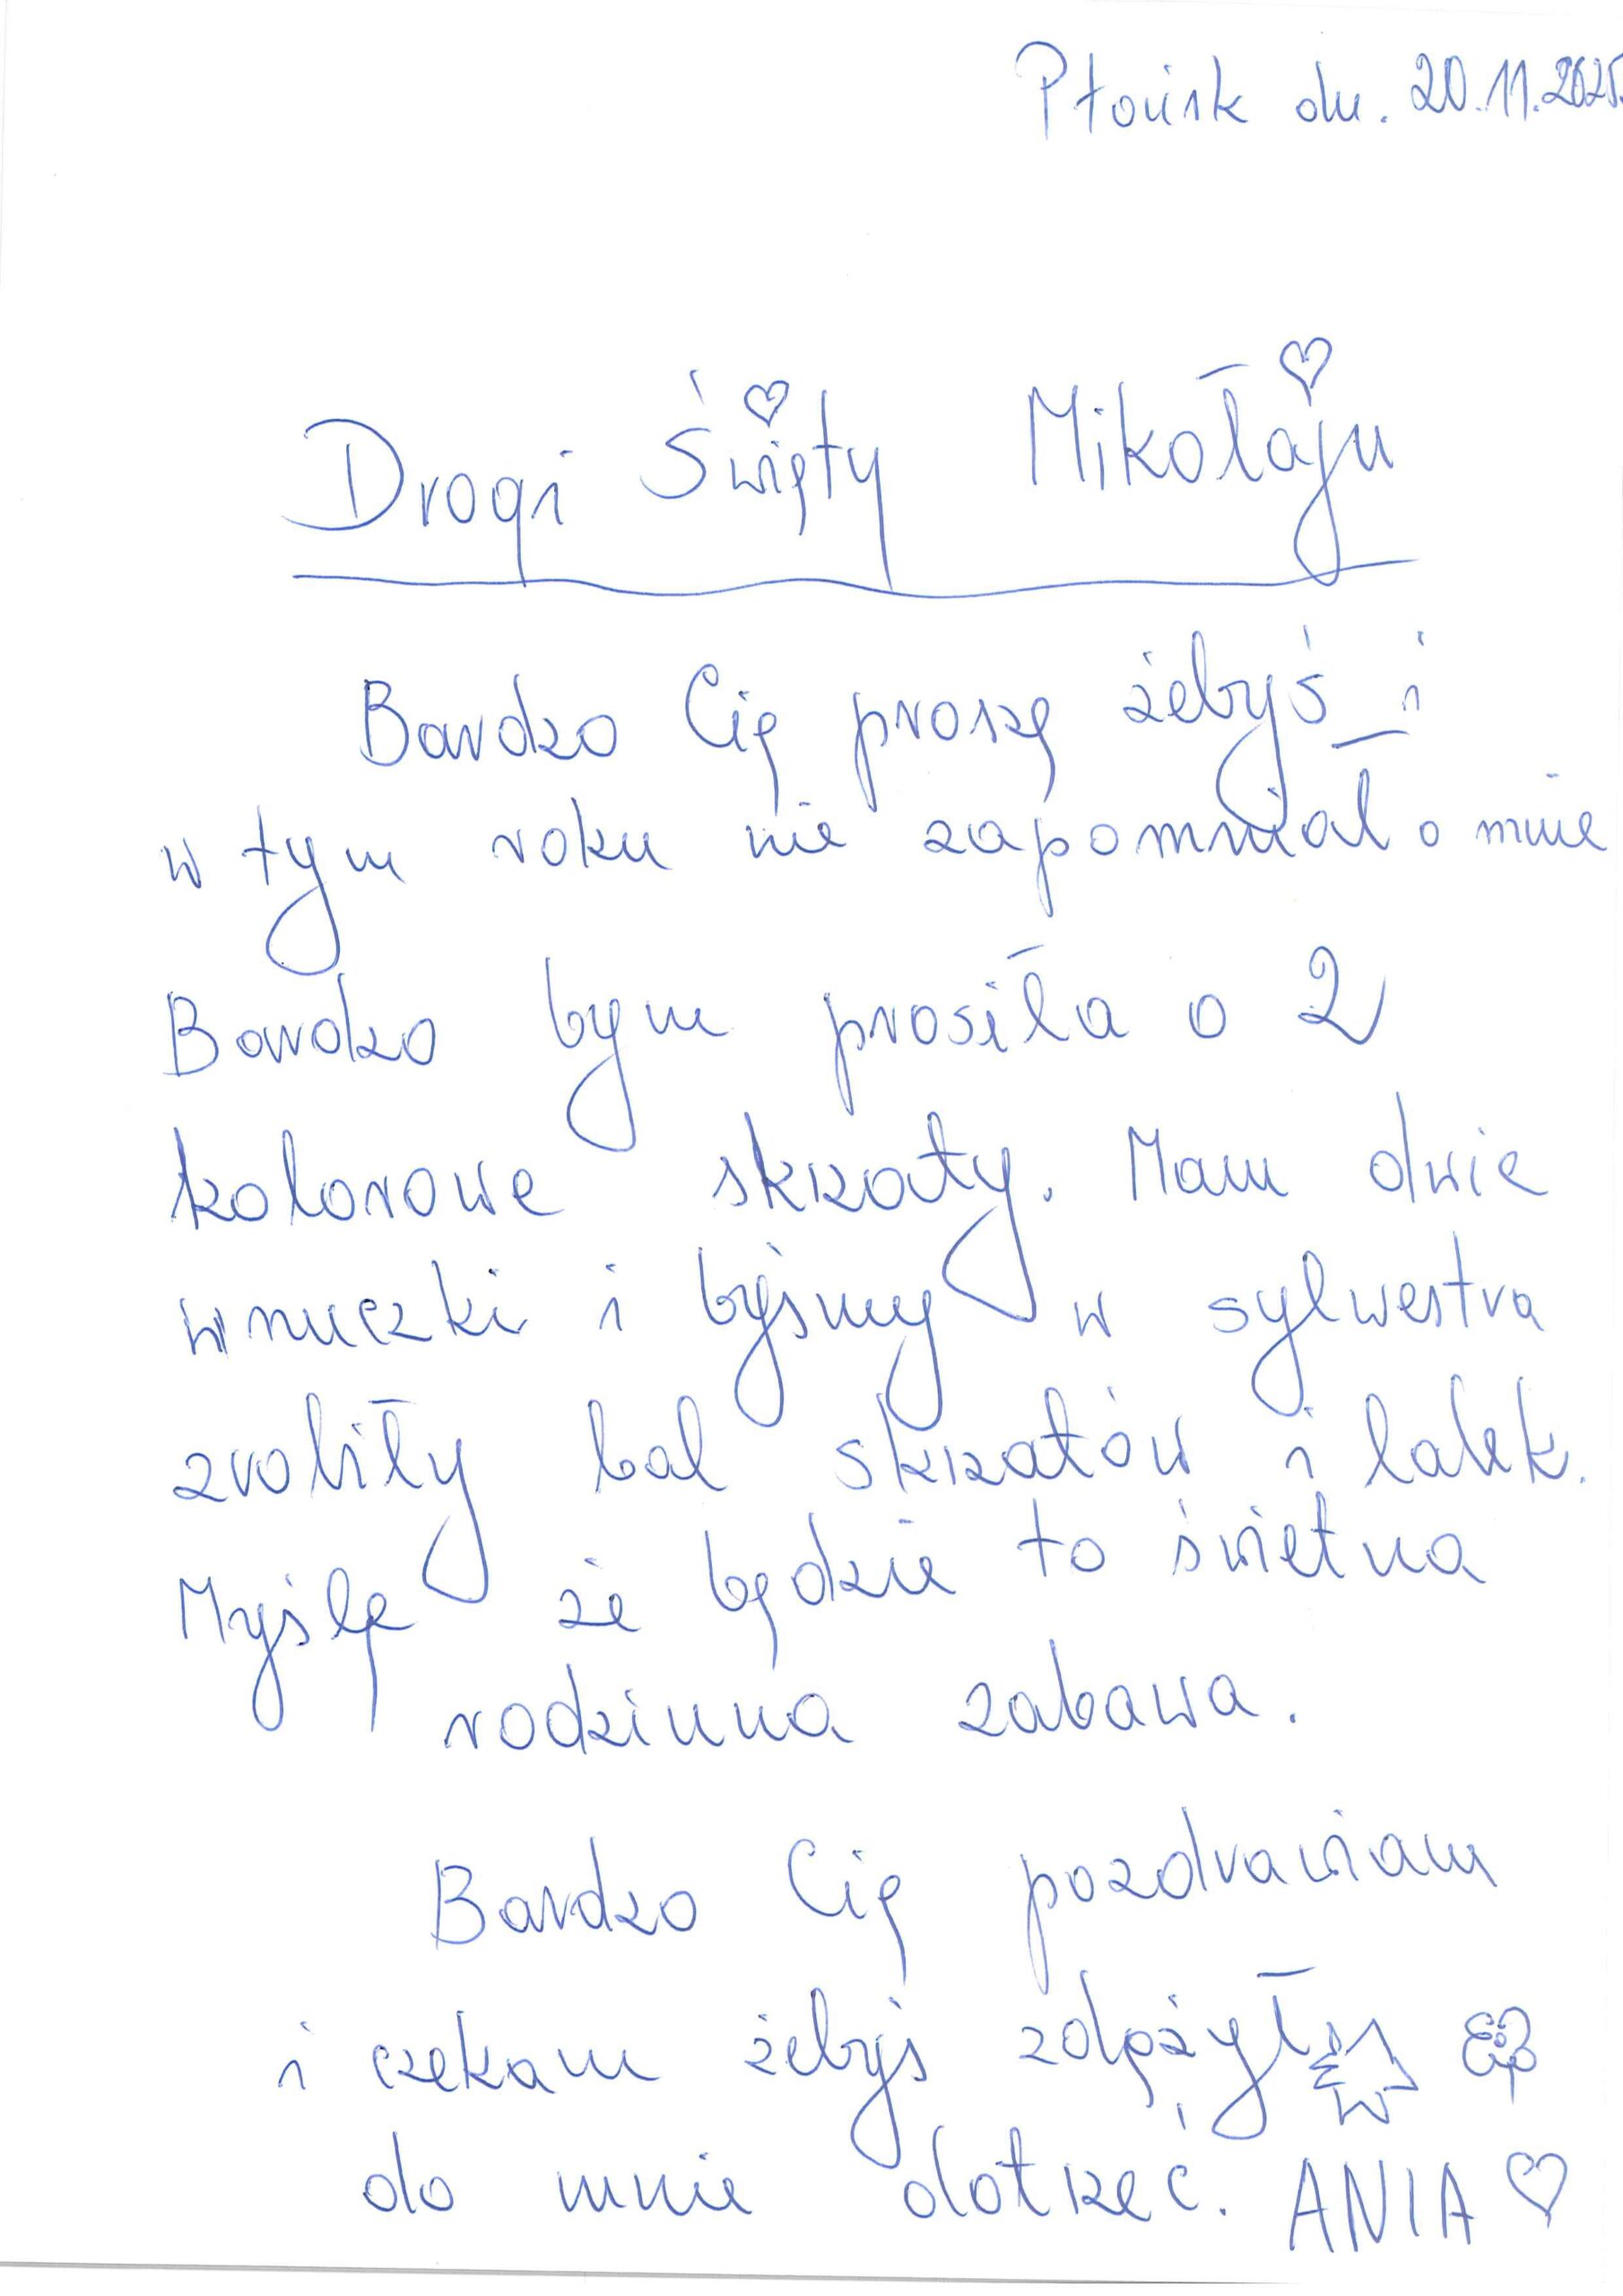 Płońsk dn. 20.11.2025
Drogi Święty Mikołaju
Bardzo Cię proszę żebyś i
w tym roku nie zapomniał o mnie
Bardzo bym prosiła o 2
kolorowe skrzaty. Mam dwie
wnuczki i byśmy w sylwestra
zrobiły bal skrzatów i lalek.
Myślę że będzie to świetna
rodzinna zabawa.
Bardzo Cię pozdrawiam
i czekam żebyś zdążył
do mnie dotrzeć. ANIA